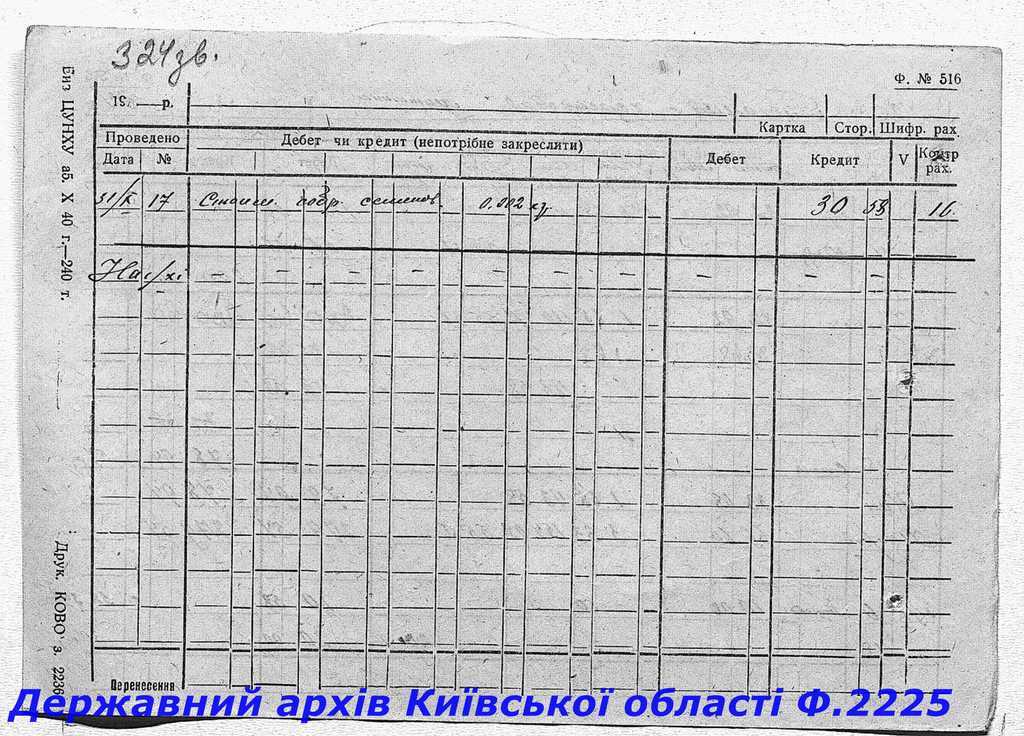 324зв.
Ф. № 516
19 —р.
Картка Стор. Шифр. рах
Проведено Дебет чи кредит (непотрібне закреслити) Дебет Кредит V Контр рах.
Дата №
31/X 17 семенов 0.002 30 53 16.
На 1/XI — — — — — — — — — —
Перенесення
Без ЦУНХУ аб. X 40 г.—240 т.
Друк. КОВО з. 2236
Державний архів Київської області Ф.2225